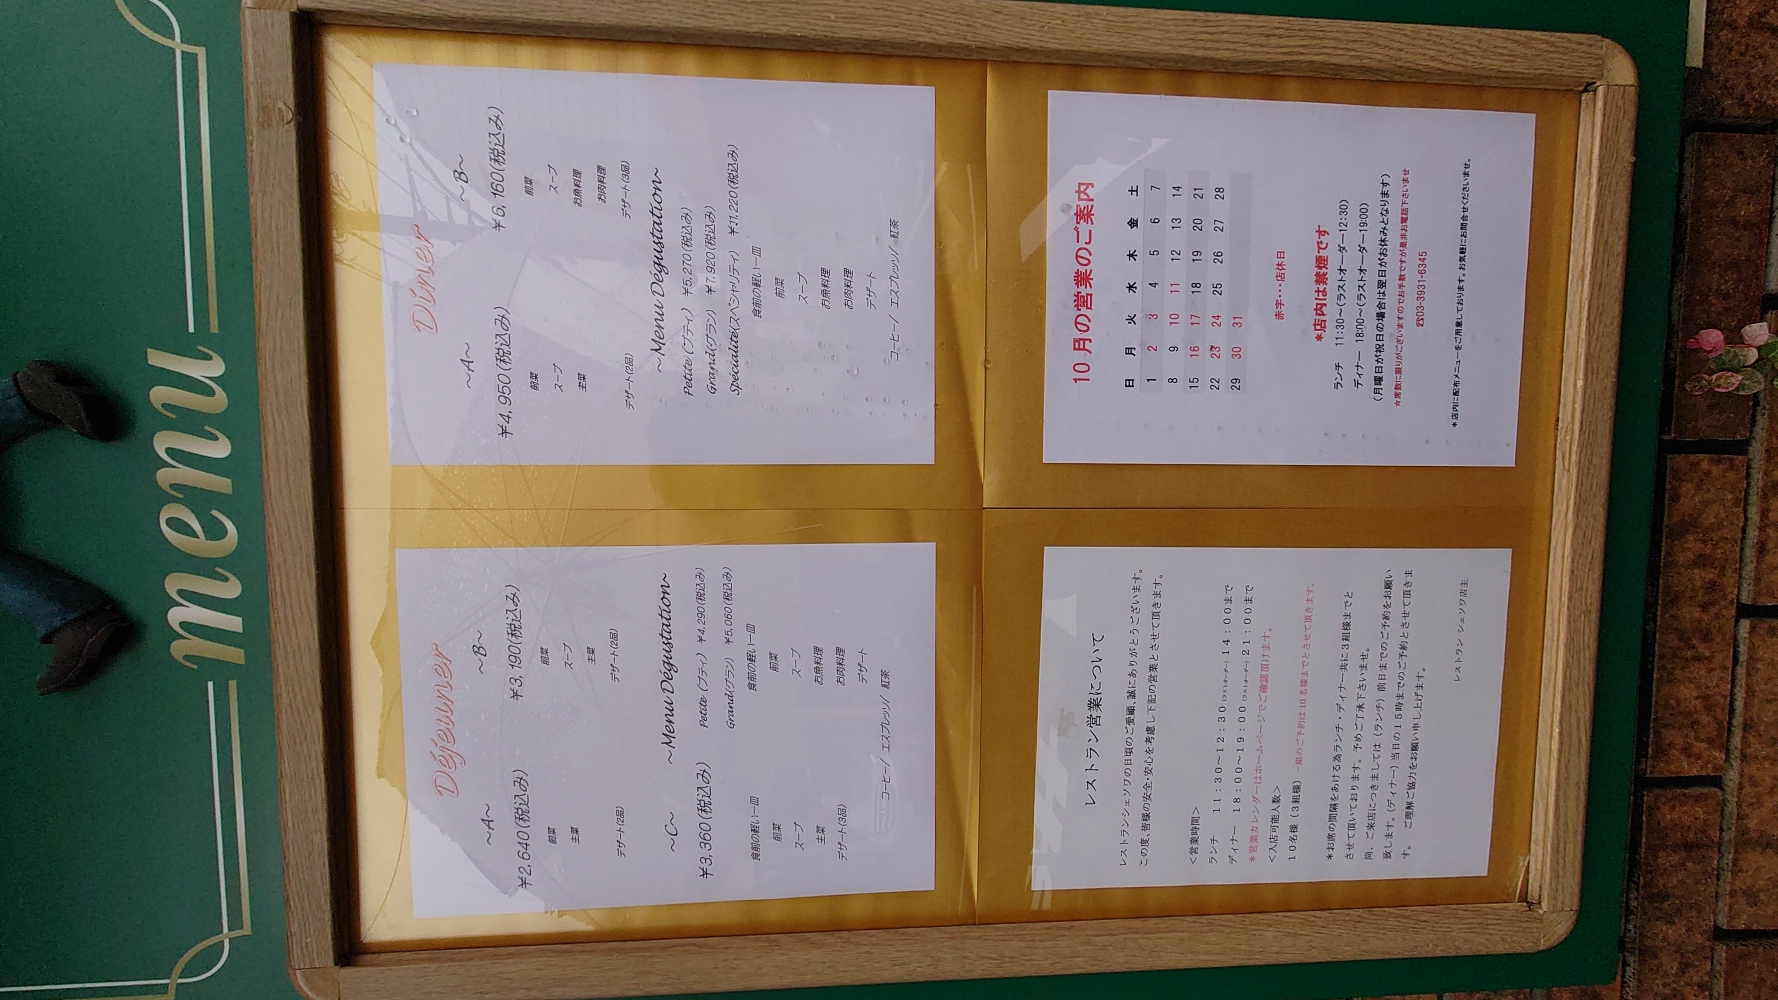 menu
Déjeuner
~A~
¥2,640(税込み)
前菜
主菜
デザート(2品)
~B~
¥3,190(税込み)
前菜
スープ
主菜
デザート(2品)
~C~
¥3,360(税込み)
食前の軽い一皿
前菜
スープ
主菜
デザート(3品)
~Menu Dégustation~
Petite(プティ) ¥4,290(税込み)
Grand(グラン) ¥5,060(税込み)
食前の軽い一皿
前菜
スープ
お魚料理
お肉料理
デザート
コーヒー/ エスプレッソ/ 紅茶
Dîner
~A~
¥4,950(税込み)
前菜
スープ
主菜
デザート(2品)
~B~
¥6,160(税込み)
前菜
スープ
お魚料理
お肉料理
デザート(3品)
~Menu Dégustation~
Petite(プティ) ¥5,270(税込み)
Grand(グラン) ¥7,920(税込み)
Spécialité(スペシャリティ) ¥11,220(税込み)
食前の軽い一皿
前菜
スープ
お魚料理
お肉料理
デザート
コーヒー/ エスプレッソ/ 紅茶
レストラン営業について
レストランシェソワの日頃のご愛顧、誠にありがとうございます。
この度、皆様の安全・安心を考慮し下記の営業とさせて頂きます。
<営業時間>
ランチ 11:30~12:30(ラストオーダー)14:00まで
ディナー 18:00~19:00(ラストオーダー)21:00まで
*営業カレンダーはホームページでご確認頂けます。
<入店可能人数>
10名様(3組様) 一組のご予約は10名様までとさせて頂きます。
*お席の間隔をあける為ランチ・ディナー共に3組様までと
させて頂いております。予めご了承下さいませ。
尚、ご来店につきましては(ランチ)前日までのご予約をお願い
致します。(ディナー)当日の15時までのご予約とさせて頂きま
す。 ご理解ご協力をお願い申し上げます。
レストラン シェソワ店主
10月の営業のご案内
日 月 火 水 木 金 土
1 2 3 4 5 6 7
8 9 10 11 12 13 14
15 16 17 18 19 20 21
22 23 24 25 26 27 28
29 30 31
赤字・・・店休日
*店内は禁煙です
ランチ 11:30~(ラストオーダー12:30)
ディナー 18:00~(ラストオーダー19:00)
(月曜日が祝日の場合は翌日がお休みとなります)
☆席数に限りがございますのでお手数ですが是非お電話下さいませ
☎03-3931-6345
*店内に配布メニューをご用意しております。お気軽にお問合せくださいませ。